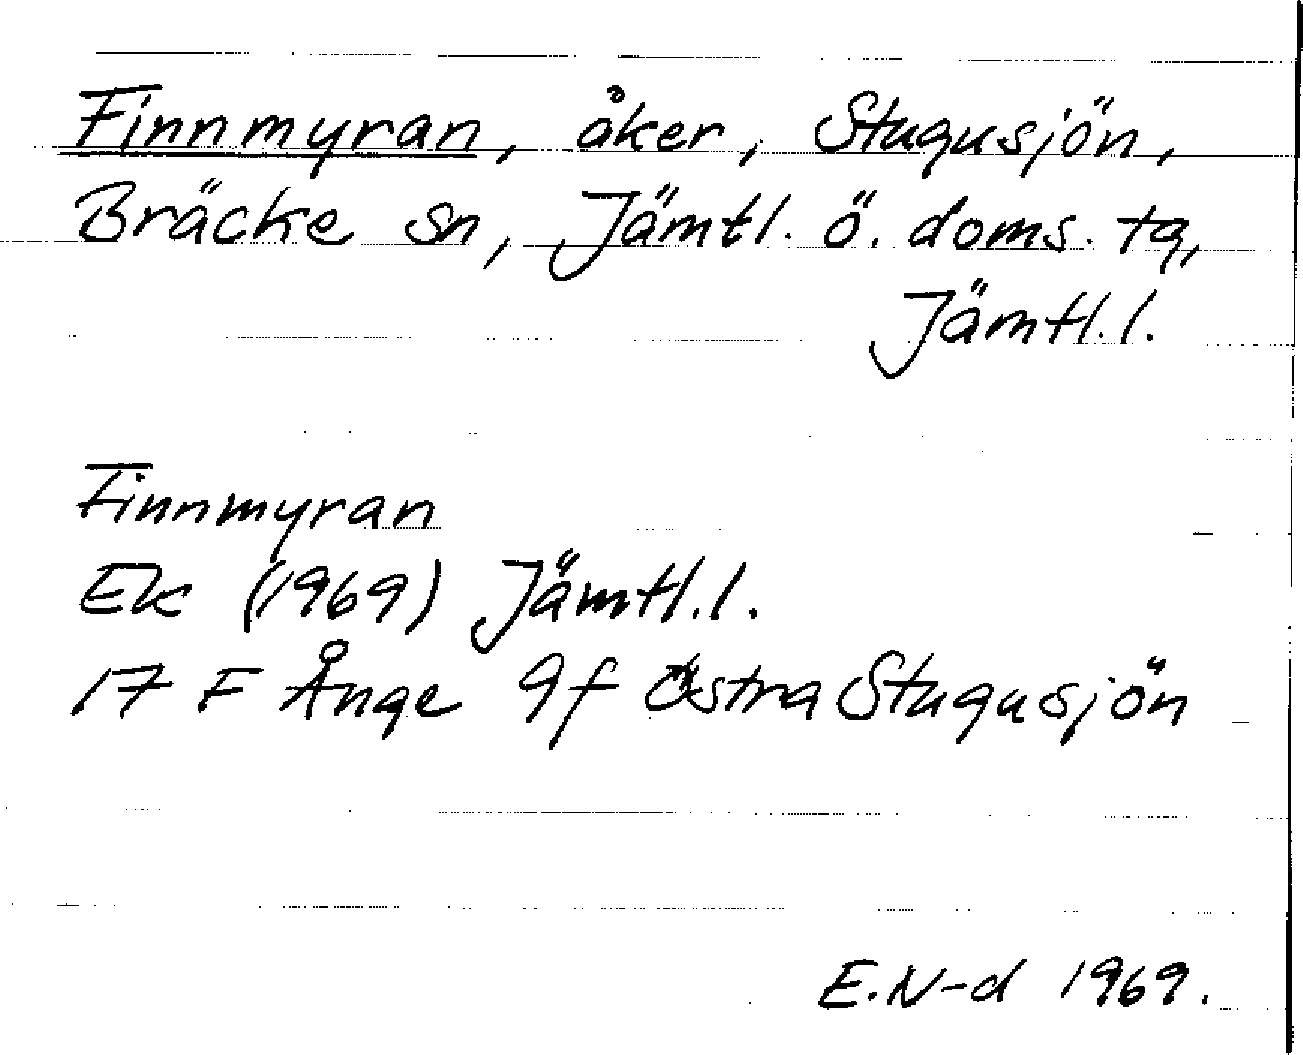 Finnmyran, åker, Stugusjön,
Bräcke sn, Jämtl. ö. doms. tg,
Jämtl. l.
Finnmyran
Ek (1969) Jämtl. l.
17 F Ånge 9f Östra Stugusjön
E. N-d 1969.